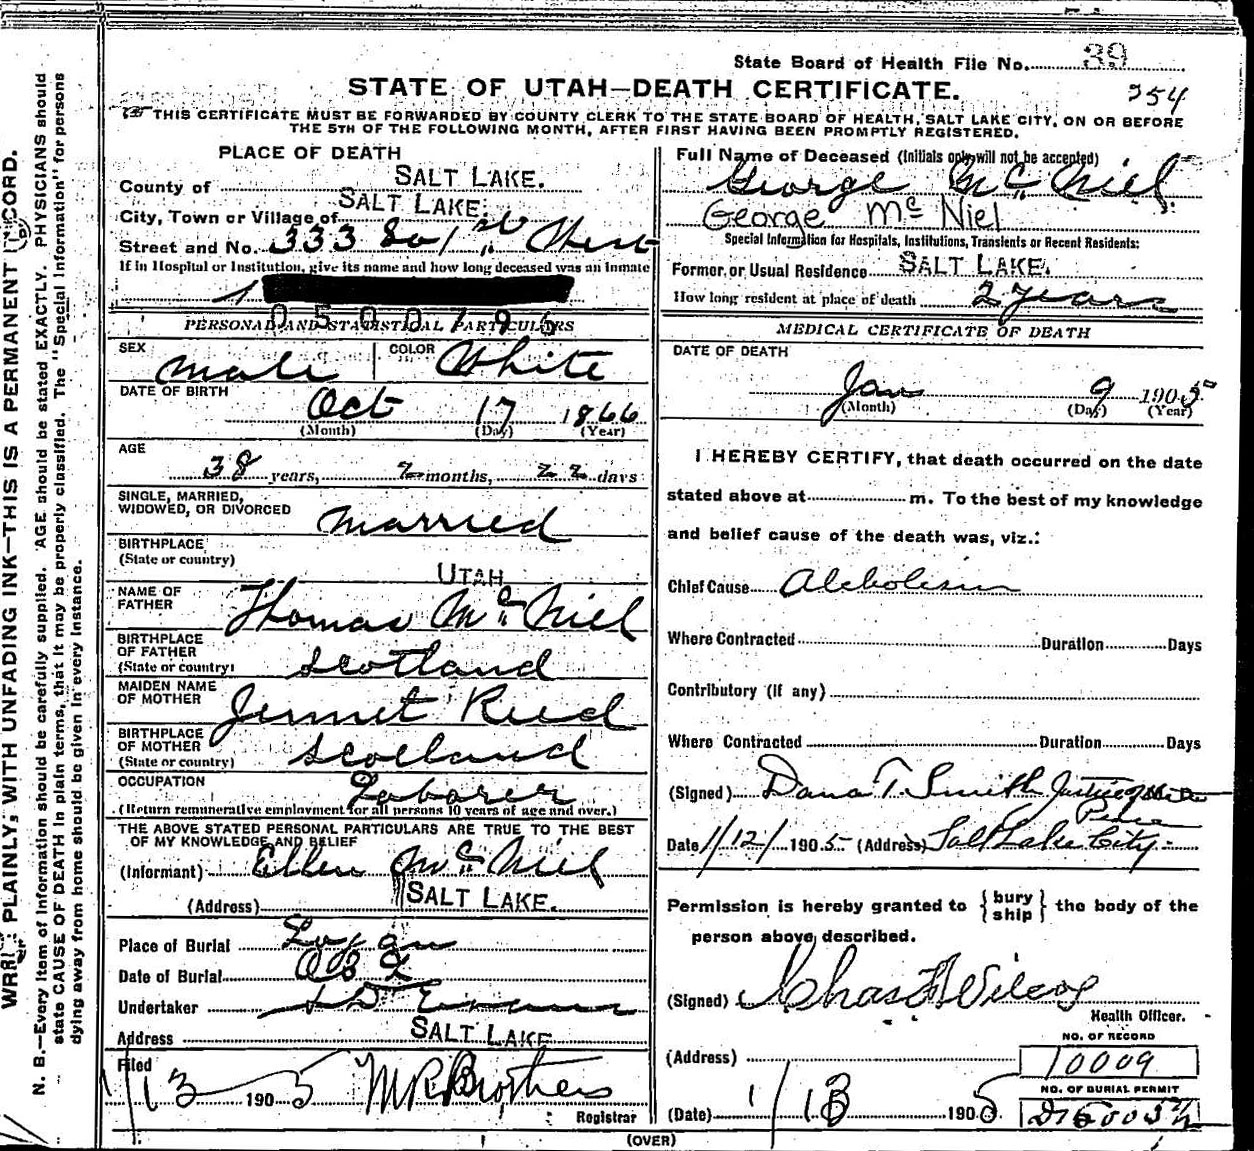 State Board of Health File No. 39
STATE OF UTAH—DEATH CERTIFICATE.
254
THIS CERTIFICATE MUST BE FORWARDED BY COUNTY CLERK TO THE STATE BOARD OF HEALTH, SALT LAKE CITY, ON OR BEFORE
THE 5TH OF THE FOLLOWING MONTH, AFTER FIRST HAVING BEEN PROMPTLY REGISTERED.
PLACE OF DEATH
County of SALT LAKE.
City, Town or Village of SALT LAKE.
Street and No. 333 So 1st West
If in Hospital or Institution, give its name and how long deceased was an inmate
0500796
PERSONAL AND STATISTICAL PARTICULARS
SEX male COLOR White
DATE OF BIRTH
Oct 17 1866
(Month) (Day) (Year)
AGE
38 years, 2 months, 22 days
SINGLE, MARRIED,
WIDOWED, OR DIVORCED married
BIRTHPLACE
(State or country)
UTAH
NAME OF
FATHER Thomas McNiel
BIRTHPLACE
OF FATHER
(State or country) Scotland
MAIDEN NAME
OF MOTHER Jennet Reed
BIRTHPLACE
OF MOTHER
(State or country) Scotland
OCCUPATION Laborer
(Return remunerative employment for all persons 10 years of age and over.)
THE ABOVE STATED PERSONAL PARTICULARS ARE TRUE TO THE BEST
OF MY KNOWLEDGE AND BELIEF
(Informant) Ellen McNiel
(Address) SALT LAKE.
Place of Burial Logan
Date of Burial
Undertaker Evans
Address SALT LAKE
Filed
1/13 1905
Registrar
Full Name of Deceased (Initials only will not be accepted)
George McNiel
George McNiel
Special Information for Hospitals, Institutions, Transients or Recent Residents:
Former or Usual Residence SALT LAKE.
How long resident at place of death 2 years
MEDICAL CERTIFICATE OF DEATH
DATE OF DEATH
Jan 9 1905
(Month) (Day) (Year)
I HEREBY CERTIFY, that death occurred on the date
stated above at m. To the best of my knowledge
and belief cause of the death was, viz.:
Chief Cause Alcholism
Where Contracted Duration Days
Contributory (if any)
Where Contracted Duration Days
(Signed) Dana T. Smith Justice of the
Peace
Date 1/12/ 1905 (Address) Salt Lake City
Permission is hereby granted to {bury
ship} the body of the
person above described.
(Signed) Chas F Wilcox
Health Officer.
NO. OF RECORD
(Address) 10009
NO. OF BURIAL PERMIT
(Date) 1/13 1905
(OVER)
WRITE PLAINLY, WITH UNFADING INK—THIS IS A PERMANENT RECORD.
N. B.—Every item of information should be carefully supplied. AGE should be stated EXACTLY. PHYSICIANS should
state CAUSE OF DEATH in plain terms, that it may be properly classified. The "Special Information" for persons
dying away from home should be given in every instance.